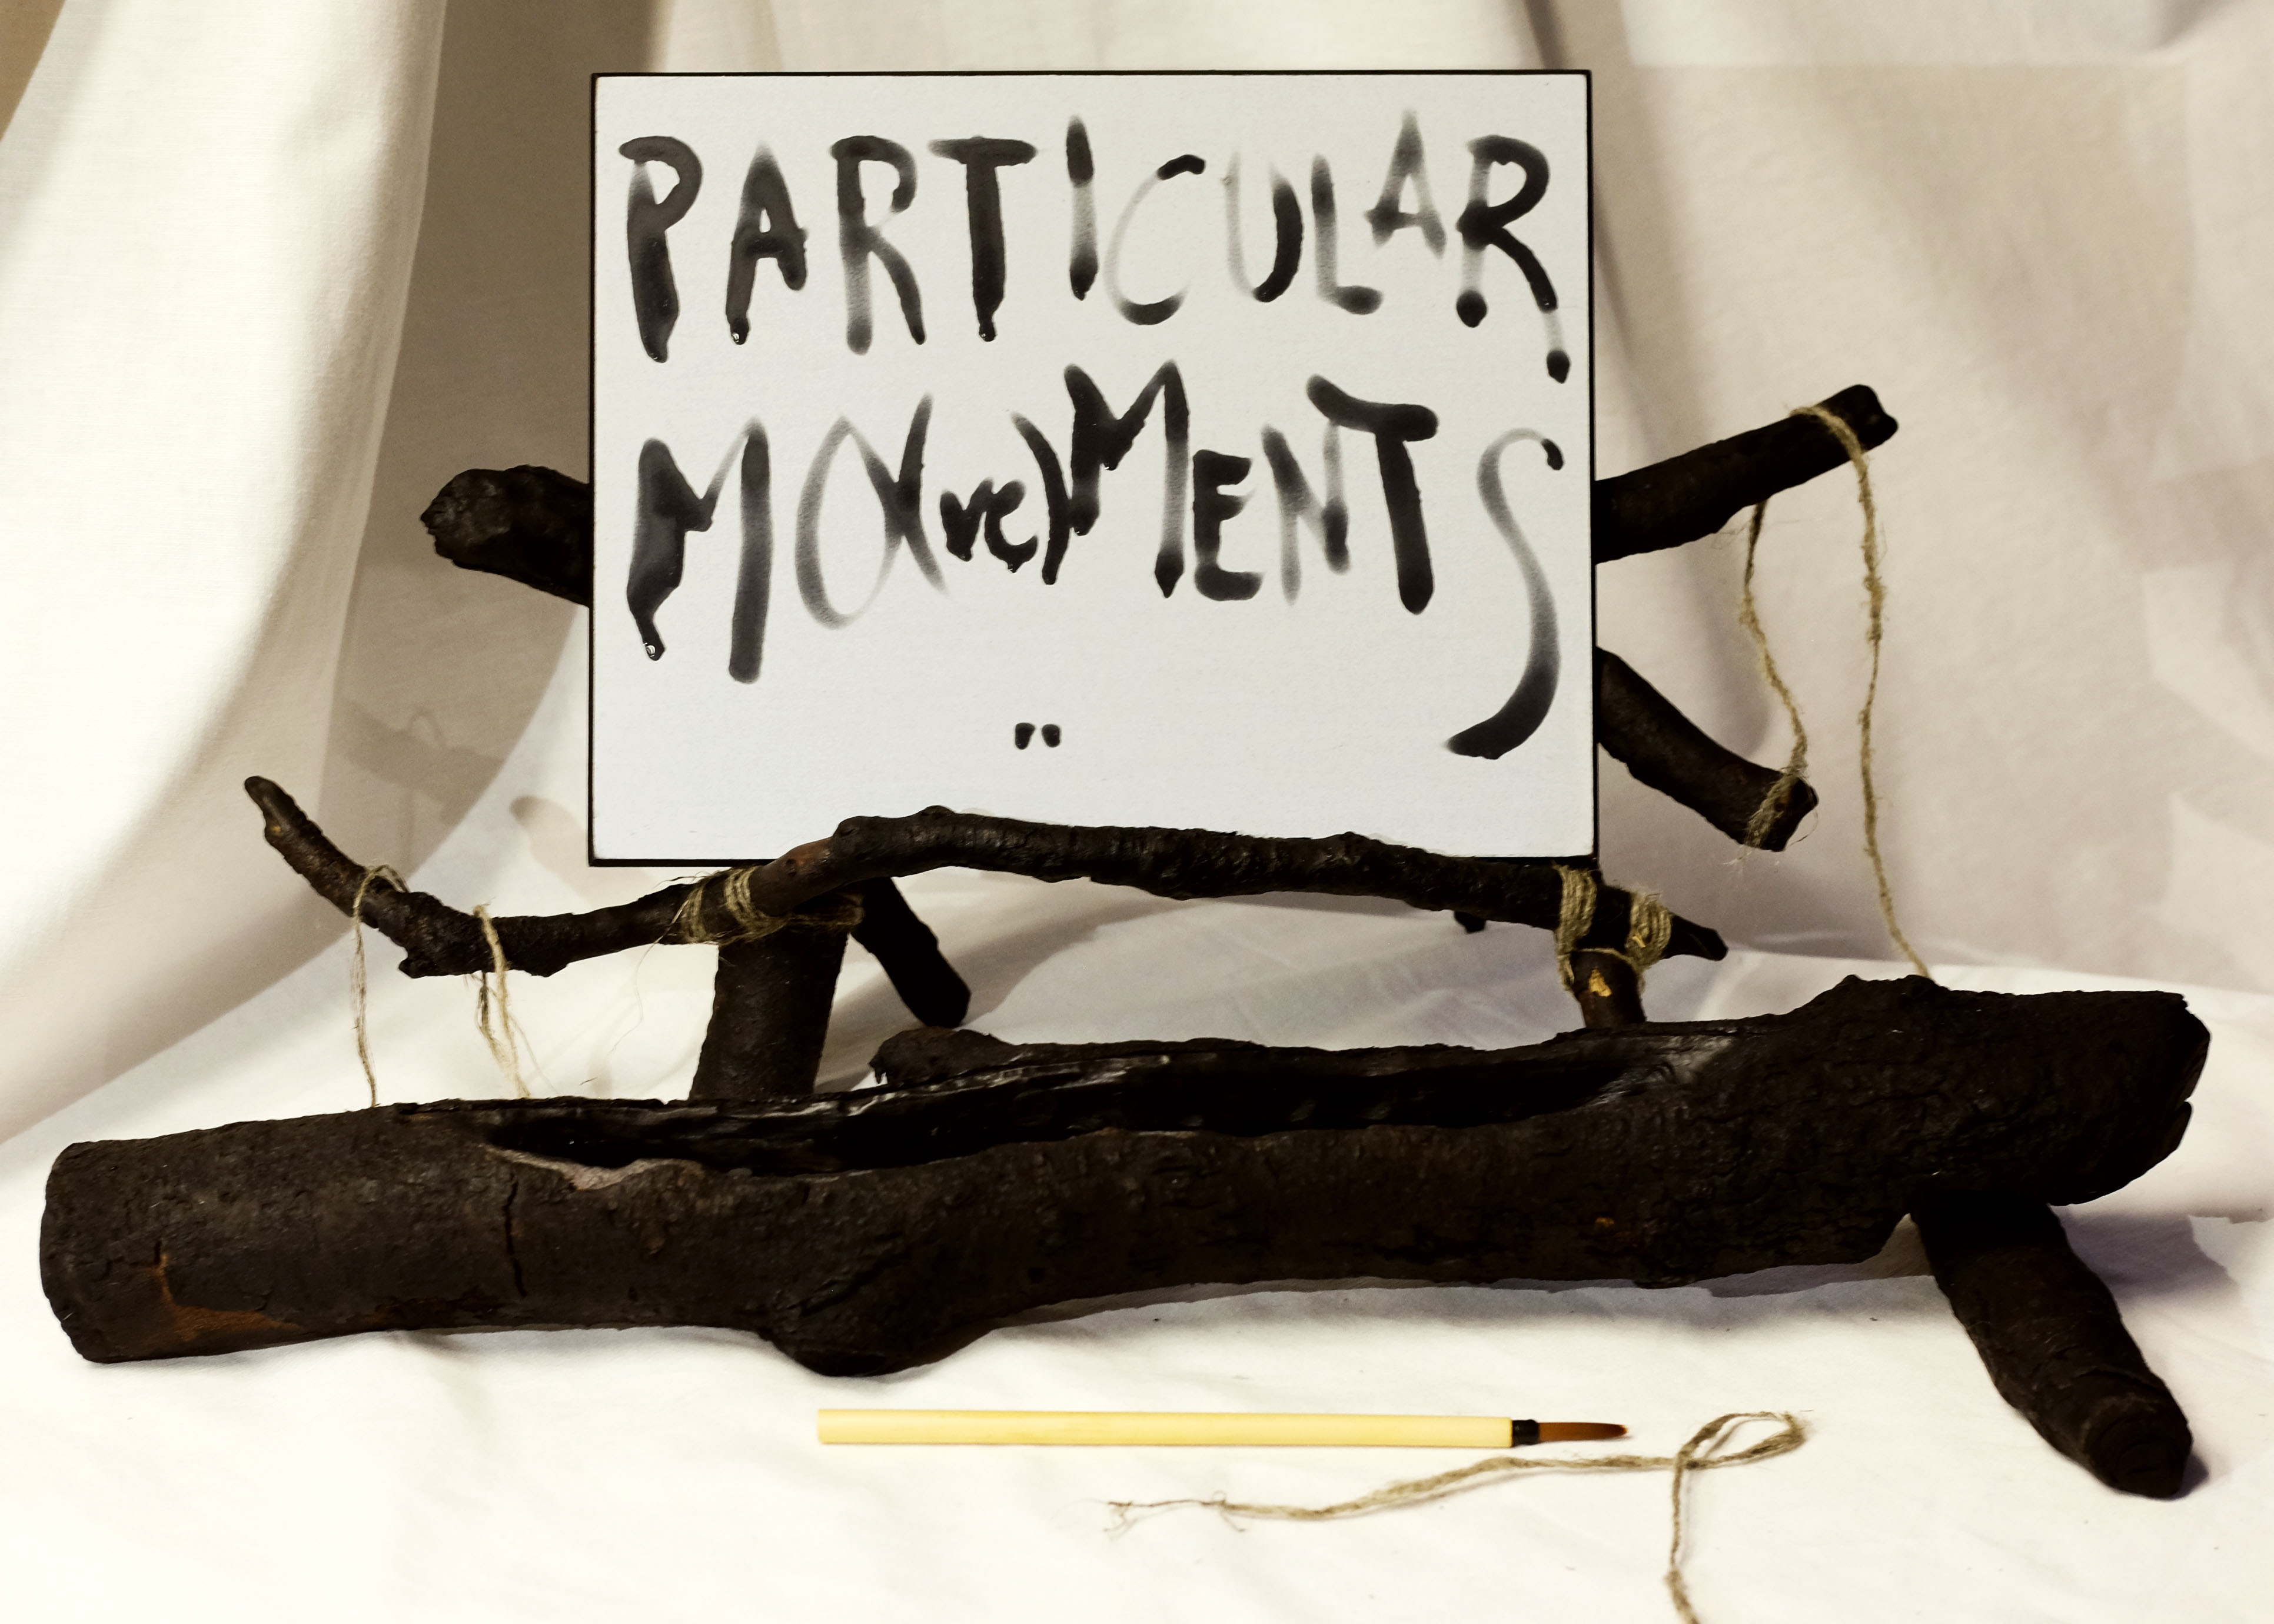 PARTICULAR
MO(ve)MENTS
"